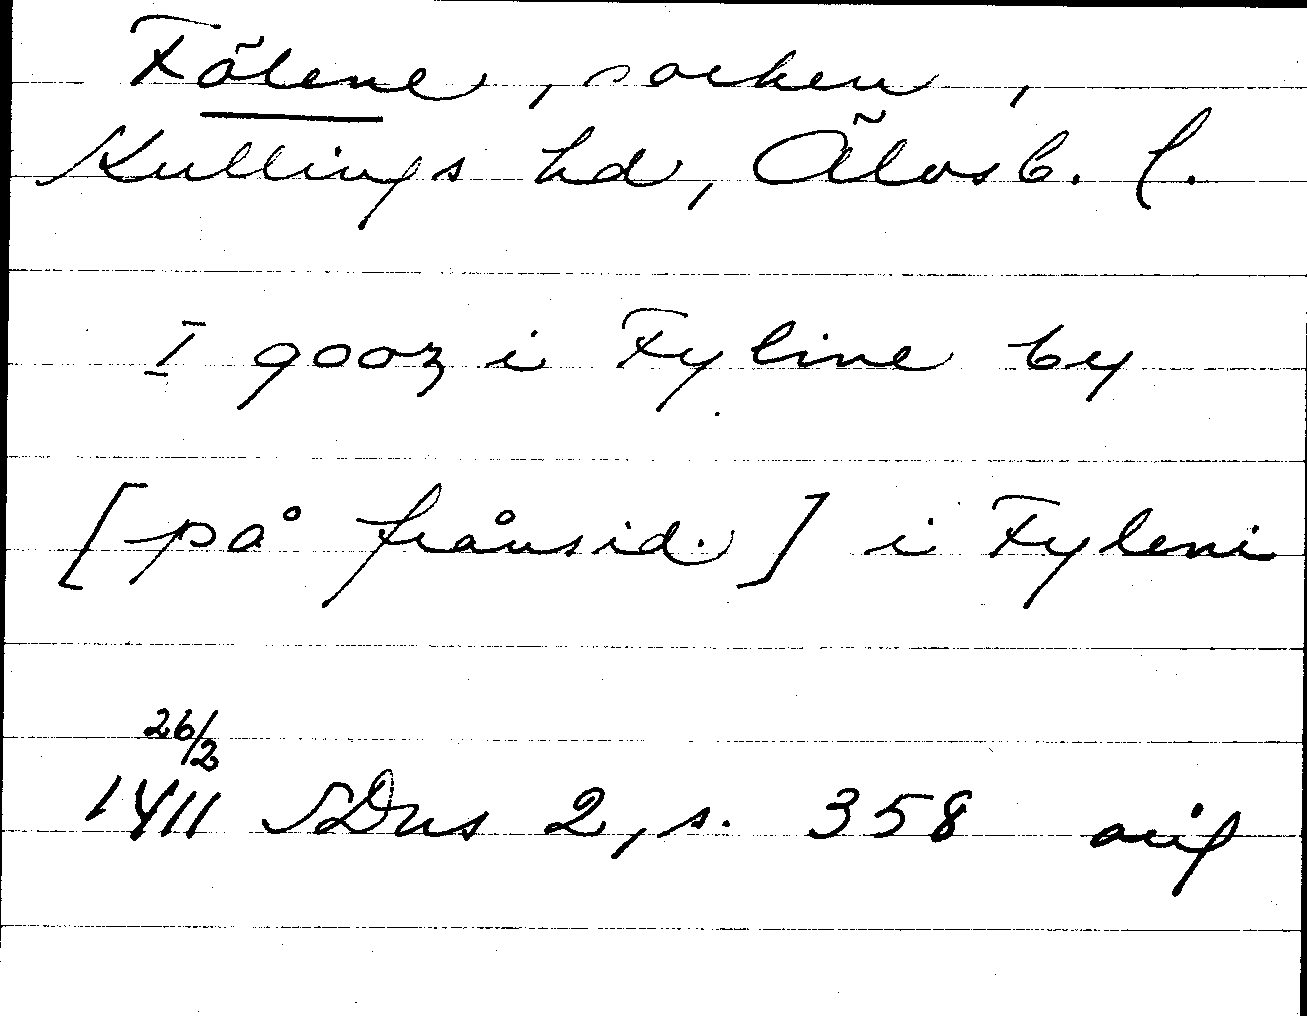 Fölene, socken,
Kullings hd, Älvsb. l.
I gooz i Fyline by
[på frånsid.] i Fyleni
26/2
1411 SDns 2, s. 358 orig